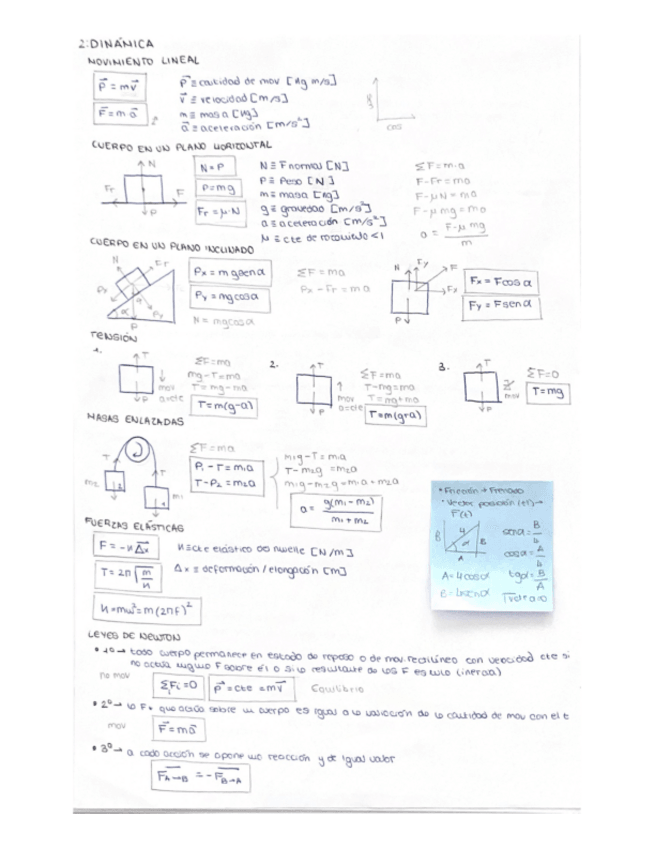 2: DINÁMICA
MOVIMIENTO LINEAL
P = mv
P ≡ cantidad de mov [Kg m/s]
v ≡ velocidad [m/s]
F = m a
m ≡ masa [Kg]
a ≡ aceleración [m/s²]
sen
cos
CUERPO EN UN PLANO HORIZONTAL
N
Fr
F
P
N = P
P = mg
Fr = μ·N
N ≡ F normal [N]
P ≡ Peso [N]
m ≡ masa [Kg]
g ≡ gravedad [m/s²]
a ≡ aceleración [m/s²]
μ ≡ cte de rozamiento <1
ΣF = m·a
F - Fr = ma
F - μN = ma
F - μ mg = ma
a = F - μ mg / m
CUERPO EN UN PLANO INCLINADO
N
Fr
Px
Py
α
Px = mg sen α
Py = mg cos α
N = mg cos α
ΣF = ma
Px - Fr = ma
N
Fy
F
Fx
P
Fx = F cos α
Fy = F sen α
TENSIÓN
1.
T
P
mov
a=cte
ΣF = ma
mg - T = ma
T = mg - ma
T = m(g-a)
2.
T
P
mov
a=cte
ΣF = ma
T - mg = ma
T = mg + ma
T = m(g+a)
3.
T
P
mov
ΣF = 0
T = mg
MASAS ENLAZADAS
T
T
m₂
2
1
m₁
ΣF = ma
P₁ - T = m₁a
T - P₂ = m₂a
m₁g - T = m₁a
T - m₂g = m₂a
m₁g - m₂g = m₁a + m₂a
a = g(m₁ - m₂) / m₁ + m₂
• Fricción → Frenado
• Vector posición
F(t)
B
4
α
B
A
sen α = B/4
cos α = A/4
A = 4cos α
tg α = B/A
B = 4sen α
FUERZAS ELÁSTICAS
F = -K Δx
K ≡ cte elástica del muelle [N/m]
T = 2π √m/K
Δx ≡ deformación/elongación [m]
K = mω² = m(2πf)²
LEYES DE NEWTON
• 1º → todo cuerpo permanece en estado de reposo o de mov. rectilíneo con velocidad cte si
no actúa ninguna F sobre él o si la resultante de las F es nula (inercia)
no mov
ΣFi = 0
P = cte = mv
Equilibrio
• 2º → la F que actúa sobre un cuerpo es igual a la variación de la cantidad de mov con el t
mov
F = ma
• 3º → a cada acción se opone una reacción y de igual valor
F A→B = - F B→A